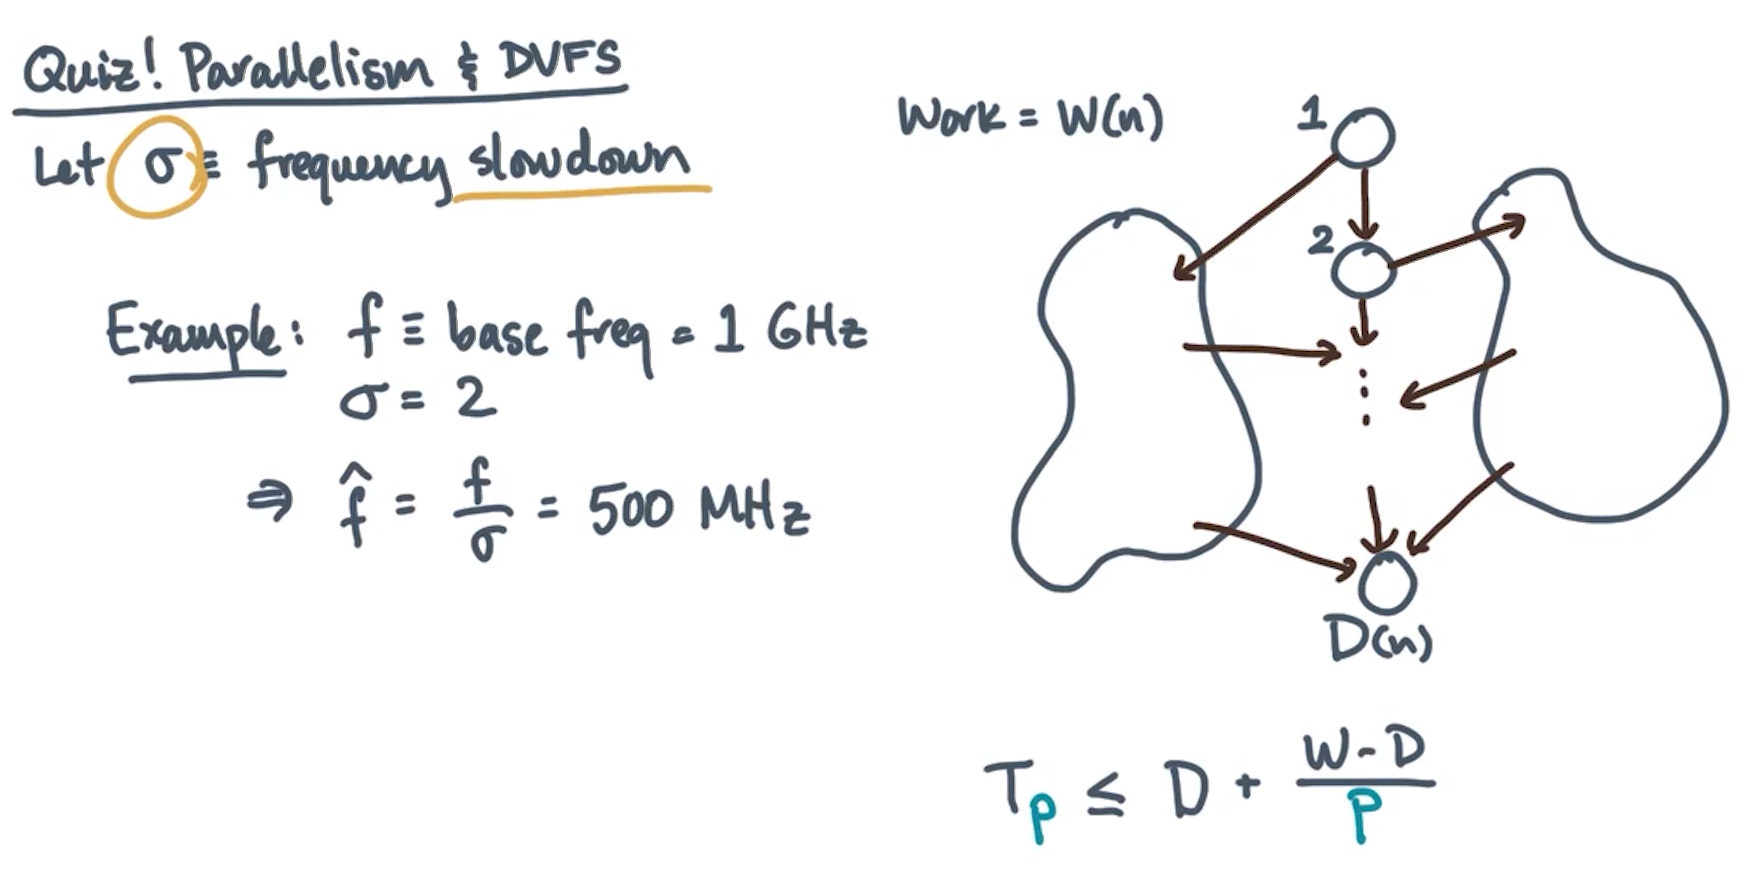 Quiz! Parallelism & DVFS
Let σ ≡ frequency slowdown
Example: f ≡ base freq = 1 GHz
σ = 2
⇒ f̂ = f/σ = 500 MHz
Work = W(n)
1
2
D(n)
T_p ≤ D + (W - D)/P